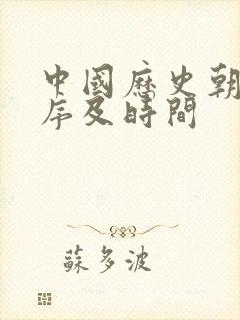 中國歷史朝
序及時間
蘇多波